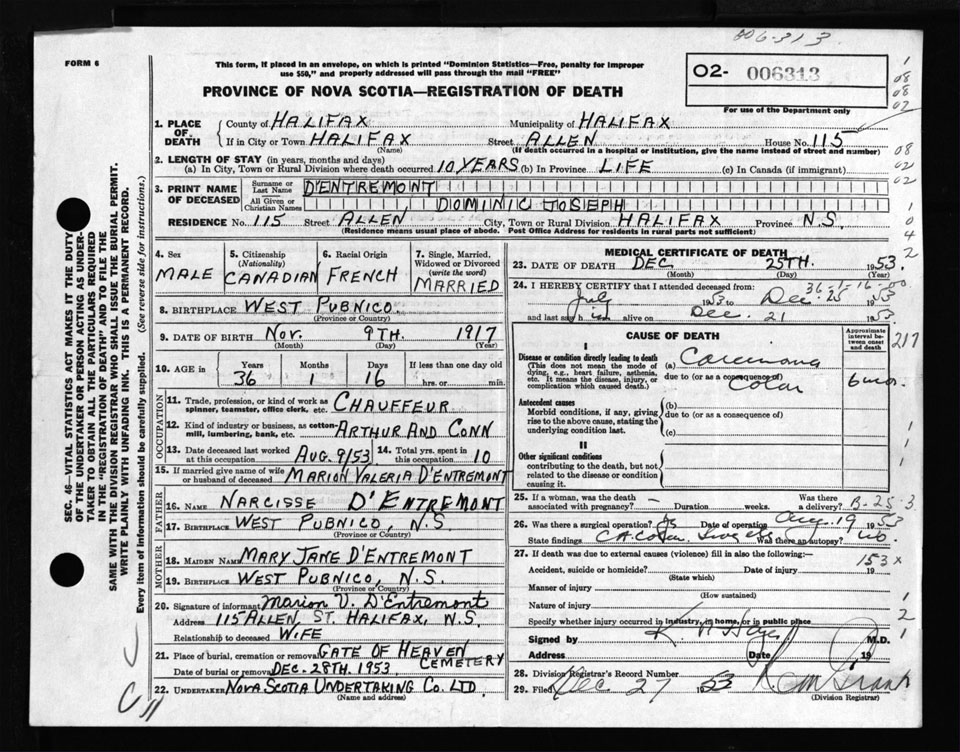 006-313
FORM 6
This form, if placed in an envelope, on which is printed "Dominion Statistics—Free, penalty for improper
use $50," and properly addressed will pass through the mail "FREE"
O2- 006313
For use of the Department only
PROVINCE OF NOVA SCOTIA—REGISTRATION OF DEATH
1. PLACE OF DEATH
County of HALIFAX Municipality of HALIFAX
If in City or Town HALIFAX Street ALLEN House No. 115
(Name) (If death occurred in a hospital or institution, give the name instead of street and number)
2. LENGTH OF STAY (in years, months and days)
(a) In City, Town or Rural Division where death occurred 10 YEARS (b) In Province LIFE (c) In Canada (if immigrant)
3. PRINT NAME OF DECEASED
Surname or Last Name D'ENTREMONT
All Given or Christian Names DOMINIC JOSEPH
RESIDENCE No. 115 Street ALLEN City, Town or Rural Division HALIFAX Province N.S.
(Residence means usual place of abode. Post Office Address for residents in rural parts not sufficient)
SEC. 46—VITAL STATISTICS ACT MAKES IT THE DUTY
OF THE UNDERTAKER OR PERSON ACTING AS UNDER-
TAKER TO OBTAIN ALL THE PARTICULARS REQUIRED
IN THE "REGISTRATION OF DEATH" AND TO FILE THE
SAME WITH THE DIVISION REGISTRAR WHO SHALL ISSUE THE BURIAL PERMIT.
WRITE PLAINLY WITH UNFADING INK. THIS IS A PERMANENT RECORD.
Every item of information should be carefully supplied. (See reverse side for instructions.)
4. Sex
MALE
5. Citizenship
(Nationality)
CANADIAN
6. Racial Origin
FRENCH
7. Single, Married,
Widowed or Divorced
(write the word)
MARRIED
8. BIRTHPLACE WEST PUBNICO
(Province or Country)
9. DATE OF BIRTH NOV. 9TH. 1917
(Month) (Day) (Year)
10. AGE in Years Months Days If less than one day old
36 1 16 hrs. or min.
OCCUPATION
11. Trade, profession, or kind of work as
spinner, teamster, office clerk, etc. CHAUFFEUR
12. Kind of industry or business, as cotton-
mill, lumbering, bank, etc. ARTHUR AND CONN
13. Date deceased last worked
at this occupation AUG. 9/53
14. Total yrs. spent in
this occupation 10
15. If married give name of wife
or husband of deceased MARION VALERIA D'ENTREMONT
FATHER
16. NAME NARCISSE D'ENTREMONT
17. BIRTHPLACE WEST PUBNICO, N.S.
(Province or Country)
MOTHER
18. MAIDEN NAME MARY JANE D'ENTREMONT
19. BIRTHPLACE WEST PUBNICO, N.S.
(Province or Country)
20. Signature of informant Marion V. D'Entremont
Address 115 ALLEN ST. HALIFAX, N.S.
Relationship to deceased WIFE
21. Place of burial, cremation or removal GATE OF HEAVEN CEMETERY
Date of burial or removal DEC. 28TH. 1953
22. UNDERTAKER NOVA SCOTIA UNDERTAKING CO. LTD.
(Name and address)
MEDICAL CERTIFICATE OF DEATH
23. DATE OF DEATH DEC. 25TH. 1953.
(Month) (Day) (Year)
24. I HEREBY CERTIFY that I attended deceased from:
July 1953 to Dec. 25 1953
and last saw him alive on Dec. 21 1953
CAUSE OF DEATH
Approximate interval between onset and death
I
Disease or condition directly leading to death
(This does not mean the mode of
dying, e.g., heart failure, asthenia,
etc. It means the disease, injury, or
complication which caused death.)
(a) Carcinoma
due to (or as a consequence of)
Colon 6 mos.
Antecedent causes
Morbid conditions, if any, giving
rise to the above cause, stating the
underlying condition last.
(b)
due to (or as a consequence of)
(c)
II
Other significant conditions
contributing to the death, but not
related to the disease or condition
causing it.
25. If a woman, was the death
associated with pregnancy? — Duration weeks. Was there
a delivery?
26. Was there a surgical operation? yes Date of operation Aug. 19 1953
State findings Was there an autopsy? No.
27. If death was due to external causes (violence) fill in also the following:—
Accident, suicide or homicide? Date of injury 19
(State which)
Manner of injury
(How sustained)
Nature of injury
Specify whether injury occurred in industry, in home, or in public place
Signed by M.D.
Address Date 19
28. Division Registrar's Record Number
29. Filed Dec 27 1953
(Division Registrar)
217
B-25-3
153 x